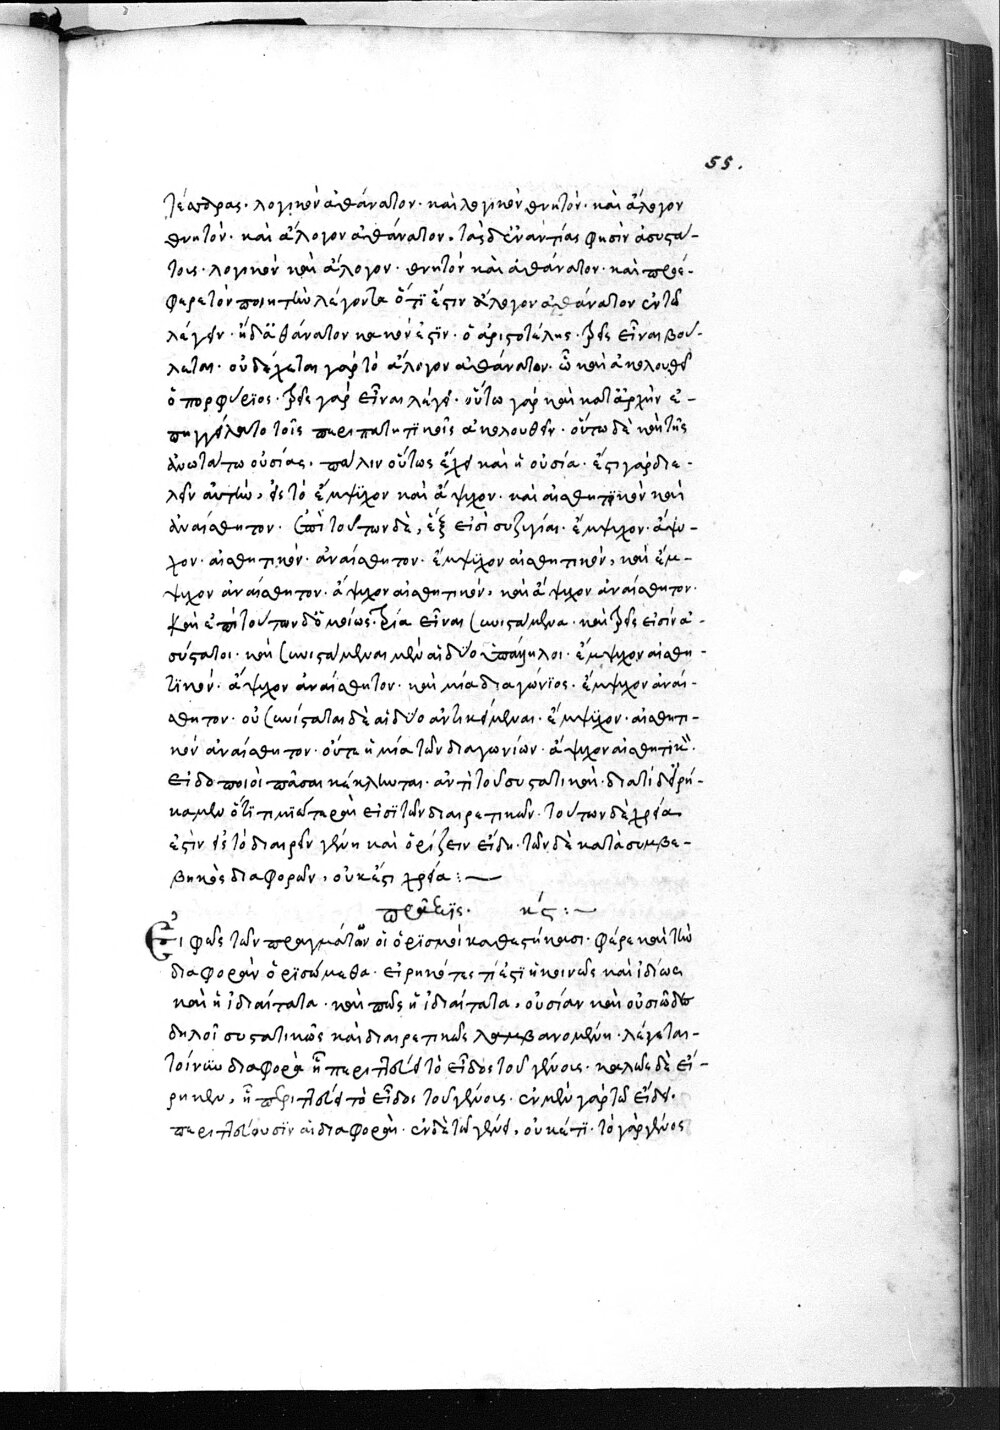 55.
τέσσαρας· λογικὸν ἀθάνατον· καὶ λογικὸν θνητόν· καὶ ἄλογον
θνητόν· καὶ ἄλογον ἀθάνατον. τὰς δὲ ἐναντίας φησὶν ἀσυστά-
τους· λογικὸν καὶ ἄλογον· θνητὸν καὶ ἀθάνατον· καὶ προ-
φέρει τὸν ποιητὴν λέγοντα ὅτι ἔστιν ἄλογον ἀθάνατον ἐν τῷ
λέγειν· ἡ δ' ἀθάνατον κακόν ἐστιν· ὁ ἀριστοτέλης· τρεῖς εἶναι βού-
λεται· οὐ δέχεται γὰρ τὸ ἄλογον ἀθάνατον· ᾧ καὶ ἀκολουθεῖ
ὁ πορφύριος· τρεῖς γὰρ εἶναι λέγει· οὕτω γὰρ καὶ κατ' ἀρχὴν ἐ-
πηγγείλατο τοῖς περιπατητικοῖς ἀκολουθεῖν· οὕτω δὲ καὶ τῆς
ἀνωτάτω οὐσίας· πάλιν οὕτως ἔχει καὶ ἡ οὐσία· ἔστι γὰρ διε-
λεῖν αὐτὴν, εἰς τὸ ἔμψυχον καὶ ἄψυχον· καὶ αἰσθητικὸν καὶ
ἀναίσθητον· ἐπὶ τούτων δὲ, ἓξ εἰσὶ συζυγίαι· ἔμψυχον· ἄψυ-
χον· αἰσθητικόν· ἀναίσθητον· ἔμψυχον αἰσθητικόν, καὶ ἔμ-
ψυχον ἀναίσθητον· ἄψυχον αἰσθητικόν, καὶ ἄψυχον ἀναίσθητον·
καὶ ἐπὶ τούτων δ' ὁμοίως· τρία εἶναι συνιστάμενα· καὶ τρεῖς εἰσὶν ἀ-
σύστατοι· καὶ συνιστάμεναι μὲν αἱ δύο ὑπάλληλοι· ἔμψυχον αἰσθη-
τικόν· ἄψυχον ἀναίσθητον· καὶ μία διαγώνιος· ἔμψυχον ἀναί-
σθητον· οὐ συνίσταται δὲ αἱ δύο ἀντικείμεναι· ἔμψυχον· αἰσθητι-
κόν ἀναίσθητον· οὔτε ἡ μία τῶν διαγωνίων· ἄψυχον αἰσθητικόν·
εἰδοποιοὶ πᾶσαι κέκληνται· ἀντὶ τοῦ συστατικαί· διατί δ' εἰρή-
καμεν ὅτι τιμιώτεραι εἰσὶ τῶν διαιρετικῶν· τούτων δὲ χρεία
ἐστὶν εἰς τὸ διαιρεῖν γένη καὶ ὁρίζειν εἴδη· τῶν δὲ κατὰ συμβε-
βηκὸς διαφορῶν, οὐκ ἔστι χρεία :—
πρᾶξις· κϛ :—
Εἰ φῶς τῶν πραγμάτων οἱ ὁρισμοὶ καθεστήκασι· φέρε καὶ τὴν
διαφορὰν ὁρισώμεθα· εἰρηκότες τί ἐστι ἡ κοινῶς καὶ ἰδίως
καὶ ἡ ἰδιαίτατα· καὶ πῶς ἡ ἰδιαίτατα, οὐσίαν καὶ οὐσιῶδες
δηλοῖ συστατικῶς καὶ διαιρετικῶς λαμβανομένη· λέγεται
τοίνυν διαφορὰ ᾗ περισσεύει τὸ εἶδος τοῦ γένους· καλῶς δὲ εἰ-
ρηκεν, ᾗ περισσεύει τὸ εἶδος τοῦ γένους· ἐν μὲν γὰρ τῷ εἴδει·
περισσεύουσιν αἱ διαφοραί· ἐν δὲ τῷ γένει, οὐκέτι· τὸ γὰρ γένος